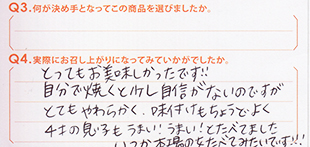 Q3.何が決め手となってこの商品を選びましたか。
Q4.実際にお召し上がりになってみていかがでしたか。
とってもお美味しかったです!!
自分で焼くと少し自信がないのですが
とてもやわらかく、味付けもちょうどよく
4才の息子もうまい!うまい!とたべてました
いつか本場のをたべてみたいです!!!